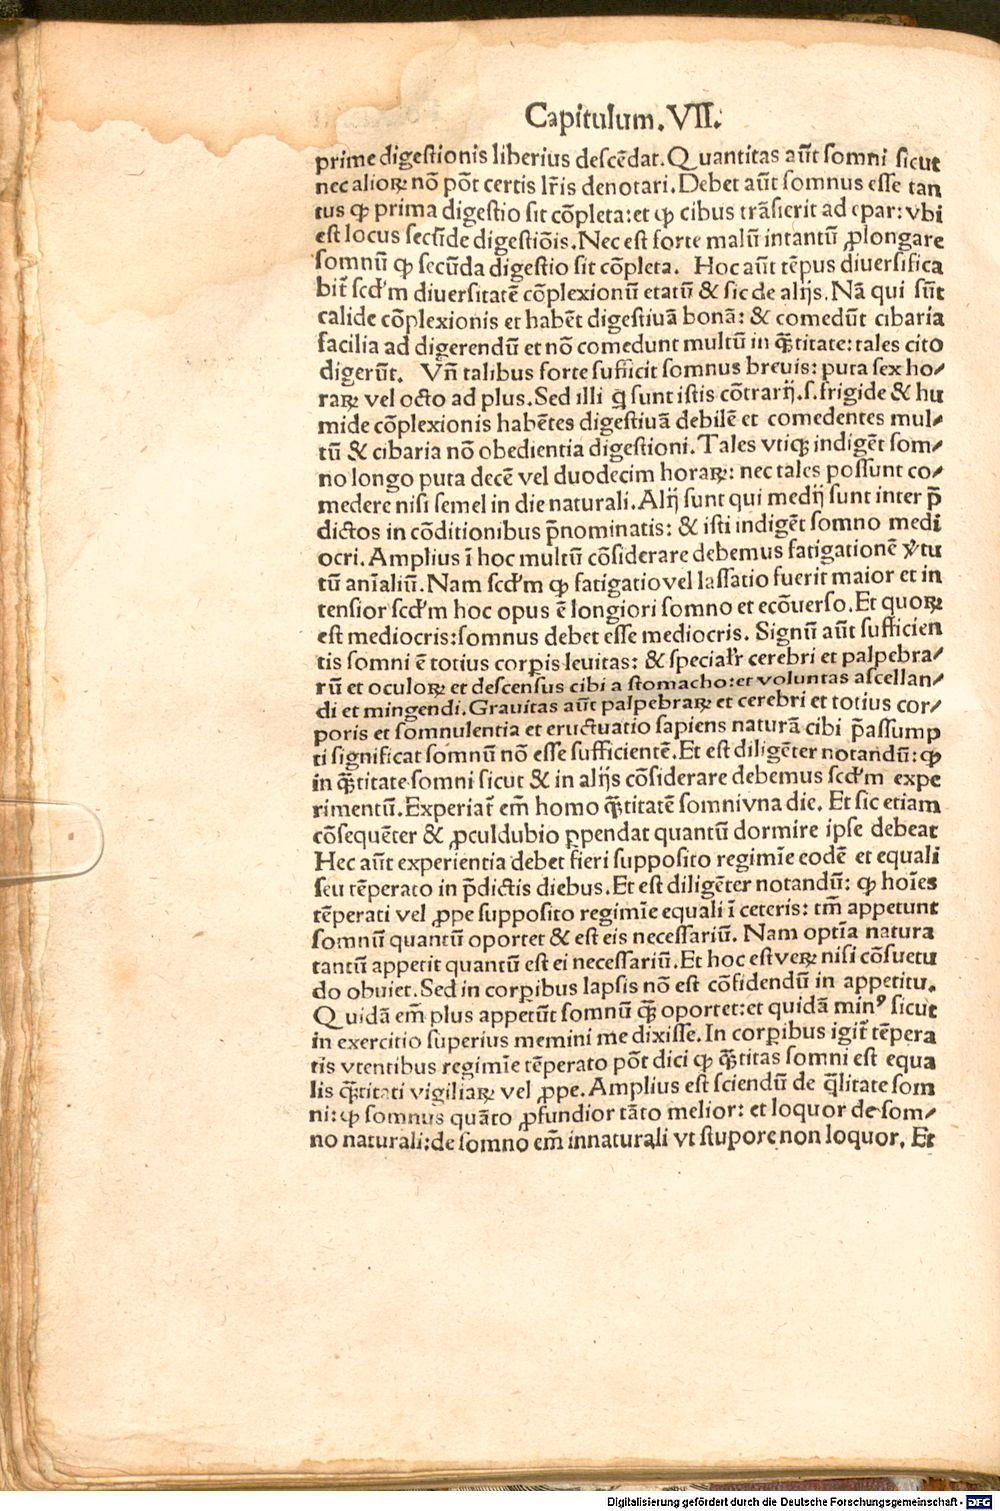 Capitulum.VII.
prime digestionis liberius descēdat. Quantitas aūt somni sicut
nec alioꝝ nō pōt certis lr̄is denotari. Debet aūt somnus esse tan
tus ꝙ prima digestio sit cōpleta: et ꝙ cibus trāsierit ad epar: vbi
est locus secūde digestiōis. Nec est forte malū intantū ꝓlongare
somnū ꝙ secūda digestio sit cōpleta. Hoc aūt tēpus diversifica
bit̄ scd'm diversitatē cōplexionū etatū & sic de alijs. Nā qui sūt
calide cōplexionis et habēt digestivā bonā: & comedūt cibaria
facilia ad digerendū et nō comedunt multū in qͣ̄titate: tales cito
digerūt. Vn̄ talibus forte sufficit somnus brevis: puta sex ho⸗
raꝝ vel octo ad plus. Sed illi q̄ sunt istis cōtrarij .s. frigide & hu
mide cōplexionis habētes digestivā debilē et comedentes mul⸗
tū & cibaria nō obedientia digestioni. Tales vtiqꝫ indigēt som⸗
no longo puta decē vel duodecim horaꝝ: nec tales possunt co⸗
medere nisi semel in die naturali. Alij sunt qui medij sunt inter p̄
dictos in cōditionibus p̄nominatis: & isti indigēt somno medi
ocri. Amplius ī hoc multū cōsiderare debemus fatigationē v̓tu
tū anīaliū. Nam scd'm ꝙ fatigatio vel lassatio fuerit maior et in
tensior scd'm hoc opus ē longiori somno et ecōuerso. Et quoꝝ
est mediocris: somnus debet esse mediocris. Signū aūt sufficien
tis somni ē totius corꝑis levitas: & specialr̄ cerebri et palpebra⸗
rū et oculoꝝ et descensus cibi a stomacho: et voluntas asellan⸗
di et mingendi. Gravitas aūt palpebraꝝ et cerebri et totius cor⸗
poris et somnulentia et eructuatio sapiens naturā cibi p̄assump
ti significat somnū nō esse sufficientē. Et est diligēter notandū: ꝙ
in qͣ̄titate somni sicut & in alijs cōsiderare debemus scd'm expe
rimentū. Experiat̄ em̄ homo qͣ̄titatē somni vna die. Et sic etiam
cōsequēter & ꝓculdubio ꝑpendat quantū dormire ipse debeat
Hec aūt experientia debet fieri supposito regimīe eodē et equali
seu tēperato in p̄dictis diebus. Et est diligēter notandū: ꝙ hoīes
tēperati vel ꝓpe supposito regimīe equali ī ceteris: tm̄ appetunt
somnū quantū oportet & est eis necessariū. Nam optīa natura
tantū appetit quantū est ei necessariū. Et hoc est veꝝ nisi cōsuetu
do obuiet. Sed in corꝑibus lapsis nō est cōfidendū in appetitu.
Quidā em̄ plus appetūt somnū qͣ̄ oportet: et quidā minꝰ sicut
in exercitio superius memini me dixisse. In corꝑibus igit̄ tēpera
tis vtentibus regimīe tēperato pōt dici ꝙ qͣ̄titas somni est equa
lis qͣ̄titati vigiliaꝝ vel ꝓpe. Amplius est sciendū de q̄litate som
ni: ꝙ somnus quāto ꝓfundior tāto melior: et loquor de som⸗
no naturali: de somno em̄ innaturali vt stupore non loquor. Et
Digitalisierung gefördert durch die Deutsche Forschungsgemeinschaft - DFG